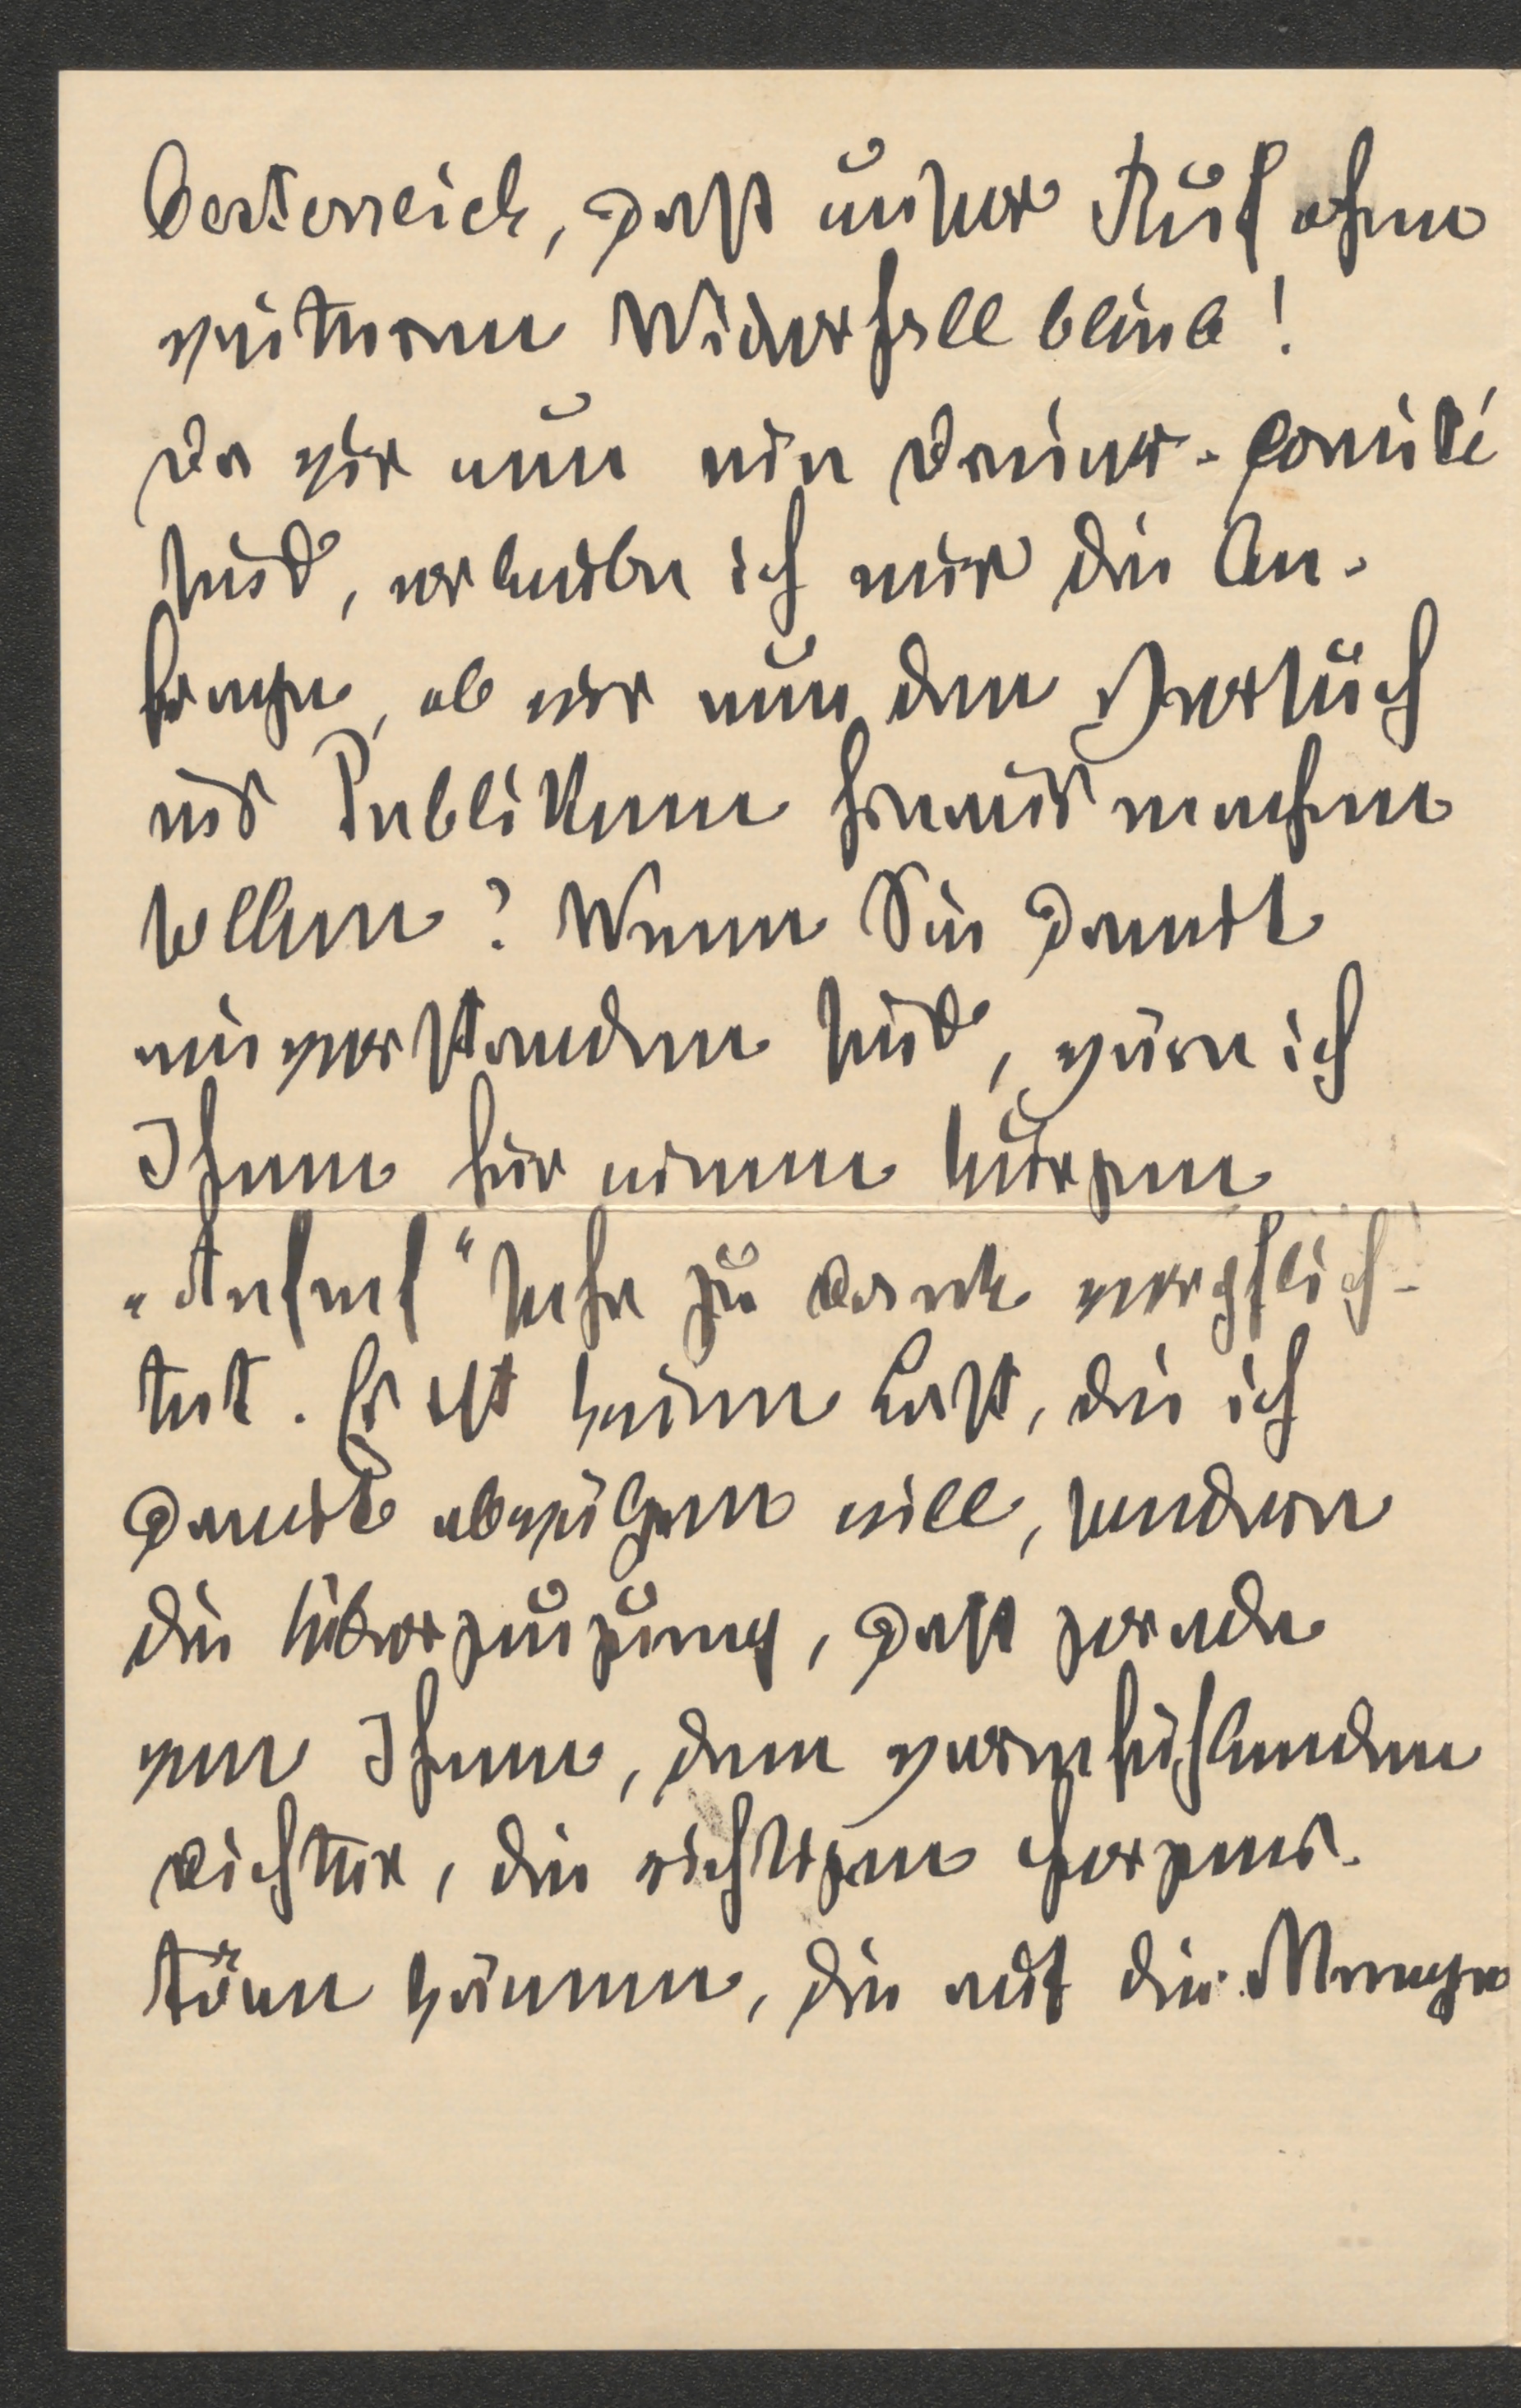 Oesterreich, daß unser Ruf ohne
weiteren Widerhall blieb!
Da wir nun ein Dreier-Comité
sind, erlaube ich mir die An-
frage, ob wir nun den Versuch
ins Publikum hinaus machen
sollen? Wenn Sie damit
einverstanden sind, wäre ich
Ihnen für einen kurzen
„Aufruf“ sehr zu Dank verpflich-
tet. Es ist keine Last, die ich
damit abwälzen will, sondern
die Überzeugung, daß gerade
von Ihnen, dem warmfühlenden
Dichter, die richtigen Herzens-
töne kämen, die auf die Menge